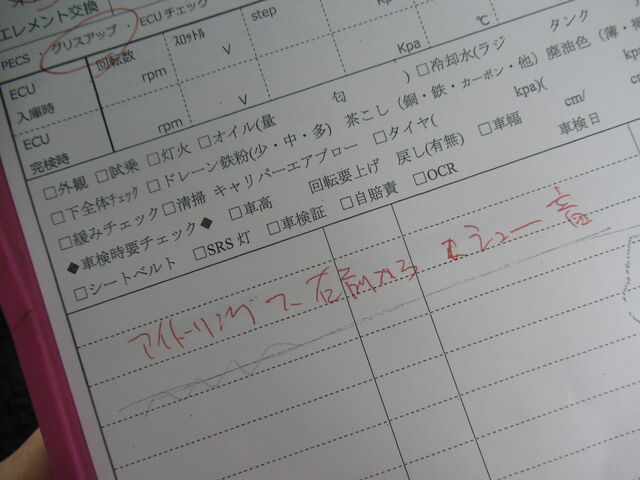 エレメント交換
PECS・グリスアップ ECUチェック
ECU 入庫時 回転数 rpm スロットル V step Kpa ℃
ECU 完検時 rpm V Kpa
□外観 □試乗 □灯火 □オイル(量 匂 ) □冷却水(ラジ タンク
□下全体チェック □ドレーン鉄粉(少・中・多) 茶こし(銅・鉄・カーボン・他) 廃油色(薄・
□緩みチェック □清掃 キャリパーエアブロー □タイヤ( kpa)( kpa)
◆車検時要チェック◆ □車高 回転要上げ 戻し(有無) □車幅 cm/ cm/
□シートベルト □SRS灯 □車検証 □自賠責 □OCR 車検日
アイドリングで右前から シュー音